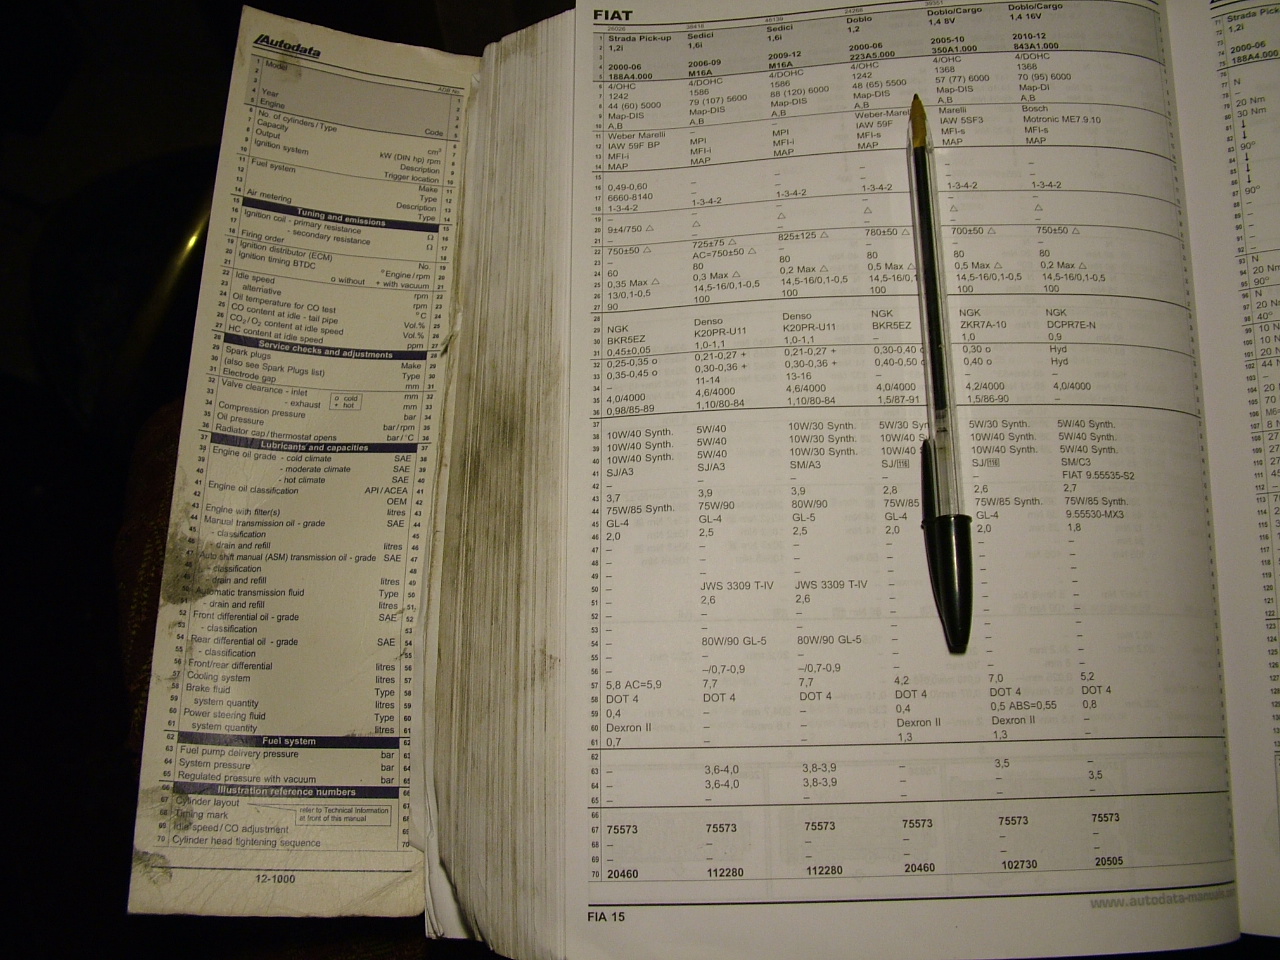 Autodata
ADB No.
1 Model 1
2 2
3 3
4 Year 4
5 Engine Code 5
6 No. of cylinders/Type 6
7 Capacity cm³ 7
8 Output kW (DIN hp) rpm 8
9 Ignition system Description 9
10 Trigger location 10
11 Fuel system Make 11
12 Type 12
13 Description 13
14 Air metering Type 14
15 Tuning and emissions 15
16 Ignition coil - primary resistance Ω 16
17 - secondary resistance Ω 17
18 Firing order 18
19 Ignition distributor (ECM) No. 19
20 Ignition timing BTDC °Engine/rpm 20
21 o without + with vacuum 21
22 Idle speed rpm 22
23 alternative rpm 23
24 Oil temperature for CO test °C 24
25 CO content at idle - tail pipe Vol.% 25
26 CO₂/O₂ content at idle speed Vol.% 26
27 HC content at idle speed ppm 27
28 Service checks and adjustments 28
29 Spark plugs Make 29
30 (also see Spark Plugs list) Type 30
31 Electrode gap mm 31
32 Valve clearance - inlet o cold mm 32
33 - exhaust + hot mm 33
34 Compression pressure bar 34
35 Oil pressure bar/rpm 35
36 Radiator cap/thermostat opens bar/°C 36
37 Lubricants and capacities 37
38 Engine oil grade - cold climate SAE 38
39 - moderate climate SAE 39
40 - hot climate SAE 40
41 Engine oil classification API/ACEA 41
42 OEM 42
43 Engine with filter(s) litres 43
44 Manual transmission oil - grade SAE 44
45 - classification 45
46 - drain and refill litres 46
47 Auto shift manual (ASM) transmission oil - grade SAE 47
48 - classification 48
49 - drain and refill litres 49
50 Automatic transmission fluid Type 50
51 - drain and refill litres 51
52 Front differential oil - grade SAE 52
53 - classification 53
54 Rear differential oil - grade SAE 54
55 - classification 55
56 Front/rear differential litres 56
57 Cooling system litres 57
58 Brake fluid Type 58
59 system quantity litres 59
60 Power steering fluid Type 60
61 system quantity litres 61
62 Fuel system 62
63 Fuel pump delivery pressure bar 63
64 System pressure bar 64
65 Regulated pressure with vacuum bar 65
66 Illustration reference numbers
67 Cylinder layout refer to Technical Information
68 Timing mark at front of this manual
69 Idle speed/CO adjustment
70 Cylinder head tightening sequence 70
12-1000
FIAT
1 Strada Pick-up Sedici Sedici Doblo Doblo/Cargo Doblo/Cargo
2 1,2i 1,6i 1,6i 1,2 1,4 8V 1,4 16V
4 2000-06 2006-09 2009-12 2000-06 2005-10 2010-12
5 188A4.000 M16A M16A 223A5.000 350A1.000 843A1.000
6 4/OHC 4/DOHC 4/DOHC 4/OHC 4/OHC 4/DOHC
7 1242 1586 1586 1242 1368 1368
8 44 (60) 5000 79 (107) 5600 88 (120) 6000 48 (65) 5500 57 (77) 6000 70 (95) 6000
9 Map-DIS Map-DIS Map-DIS Map-DIS Map-DIS Map-Di
10 A,B A,B A,B A,B A,B A,B
11 Weber Marelli – – Weber-Marel Marelli Bosch
12 IAW 59F BP MPI MPI IAW 59F IAW 5SF3 Motronic ME7.9.10
13 MFI-i MFI-i MFI-i MFI-s MFI-s MFI-s
14 MAP MAP MAP MAP MAP MAP
15
16 0,49-0,60 – – – – –
17 6660-8140 – – – – –
18 1-3-4-2 1-3-4-2 1-3-4-2 1-3-4-2 1-3-4-2 1-3-4-2
19 – – – – – –
20 9±4/750 △ △ △ △ △ △
21 – – – – – –
22 750±50 △ 725±75 △ 825±125 △ 780±50 700±50 △ 750±50 △
23 – AC=750±50 △ – – – –
24 60 80 80 80 80 80
25 0,35 Max △ 0,3 Max △ 0,2 Max △ 0,5 Max 0,5 Max △ 0,2 Max △
26 13/0,1-0,5 14,5-16/0,1-0,5 14,5-16/0,1-0,5 14,5-16/0,1 14,5-16/0,1-0,5 14,5-16/0,1-0,5
27 90 100 100 100 100 100
28
29 NGK Denso Denso NGK NGK NGK
30 BKR5EZ K20PR-U11 K20PR-U11 BKR5EZ ZKR7A-10 DCPR7E-N
31 0,45±0,05 1,0-1,1 1,0-1,1 – 1,0 0,9
32 0,25-0,35 o 0,21-0,27 + 0,21-0,27 + 0,30-0,40 0,30 o Hyd
33 0,35-0,45 o 0,30-0,36 + 0,30-0,36 + 0,40-0,50 0,40 o Hyd
34 – 11-14 13-16 – – –
35 4,0/4000 4,6/4000 4,6/4000 4,0/4000 4,2/4000 4,0/4000
36 0,98/85-89 1,10/80-84 1,10/80-84 1,5/87-91 1,5/86-90 –
37
38 10W/40 Synth. 5W/40 10W/30 Synth. 5W/30 Syn 5W/30 Synth. 5W/40 Synth.
39 10W/40 Synth. 5W/40 10W/30 Synth. 10W/40 S 10W/40 Synth. 5W/40 Synth.
40 10W/40 Synth. 5W/40 10W/30 Synth. 10W/40 S 10W/40 Synth. 5W/40 Synth.
41 SJ/A3 SJ/A3 SM/A3 SJ/ SJ/ SM/C3
42 – – – – – FIAT 9.55535-S2
43 3,7 3,9 3,9 2,8 2,6 2,7
44 75W/85 Synth. 75W/90 80W/90 75W/85 75W/85 Synth. 75W/85 Synth.
45 GL-4 GL-4 GL-5 GL-4 GL-4 9.55530-MX3
46 2,0 2,5 2,5 2,0 2,0 1,8
47 – – – – – –
48 – – – – – –
49 – – – – – –
50 – JWS 3309 T-IV JWS 3309 T-IV – – –
51 – 2,6 2,6 – – –
52 – – – – – –
53 – – – – – –
54 – 80W/90 GL-5 80W/90 GL-5 – – –
55 – – – – – –
56 – –/0,7-0,9 –/0,7-0,9 – – –
57 5,8 AC=5,9 7,7 7,7 4,2 7,0 5,2
58 DOT 4 DOT 4 DOT 4 DOT 4 DOT 4 DOT 4
59 0,4 – – 0,4 0,5 ABS=0,55 0,8
60 Dexron II – – Dexron II Dexron II –
61 0,7 – – 1,3 1,3 –
62
63 – 3,6-4,0 3,8-3,9 – 3,5 –
64 – 3,6-4,0 3,8-3,9 – – 3,5
65 – – – – – –
66
67 75573 75573 75573 75573 75573 75573
68 – – – – – –
69 – – – – – –
70 20460 112280 112280 20460 102730 20505
FIA 15
www.autodata-manuals
Strada Pick
1,2i
2000-06
188A4.000
N
20 Nm
30 Nm
90°
90°
N
20 Nm
90°
N
20 N
40°
10 N
20 N
44 N